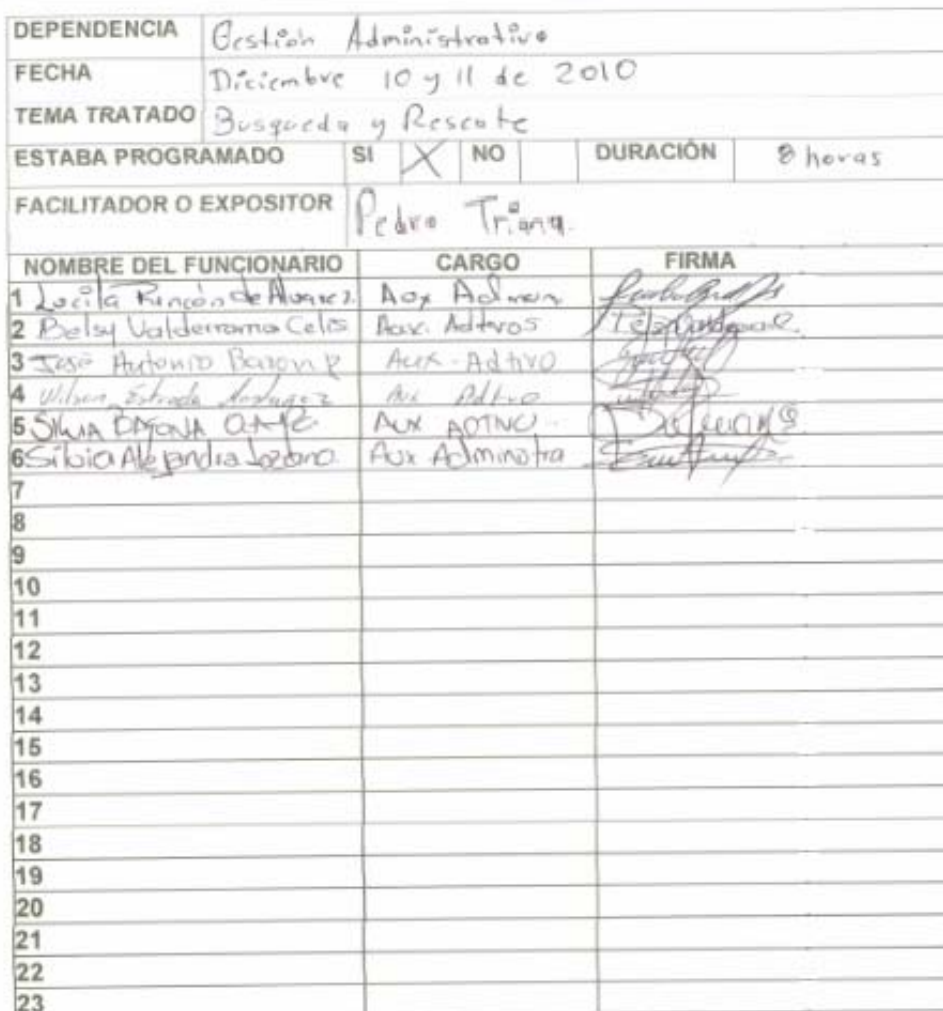 DEPENDENCIA Gestión Administrativa
FECHA Diciembre 10 y 11 de 2010
TEMA TRATADO Busqueda y Rescate
ESTABA PROGRAMADO SI X NO DURACIÓN 8 horas
FACILITADOR O EXPOSITOR Pedro Triana.
NOMBRE DEL FUNCIONARIO CARGO FIRMA
1 Lucila Rincón de Alvarez Aux Admon
2 Belsy Valderrama Celis Aux. Adtvos
3 José Antonio P Aux-Adtivo
4 Wilson Estrada Aux Adtvo
5 SILVIA AUX ADTIVO
6 Silvia Alejandra Lozano. Aux Adminstra
7
8
9
10
11
12
13
14
15
16
17
18
19
20
21
22
23